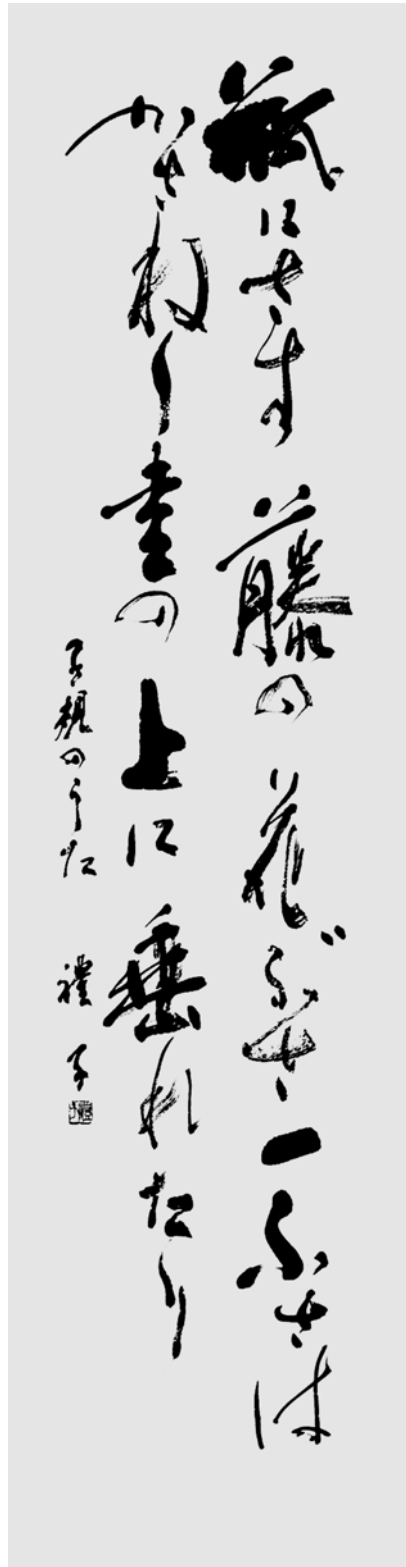 瓶にさす藤の花ぶさ一ふさは
かさねし書の上に垂れたり
子規のうた 禮子